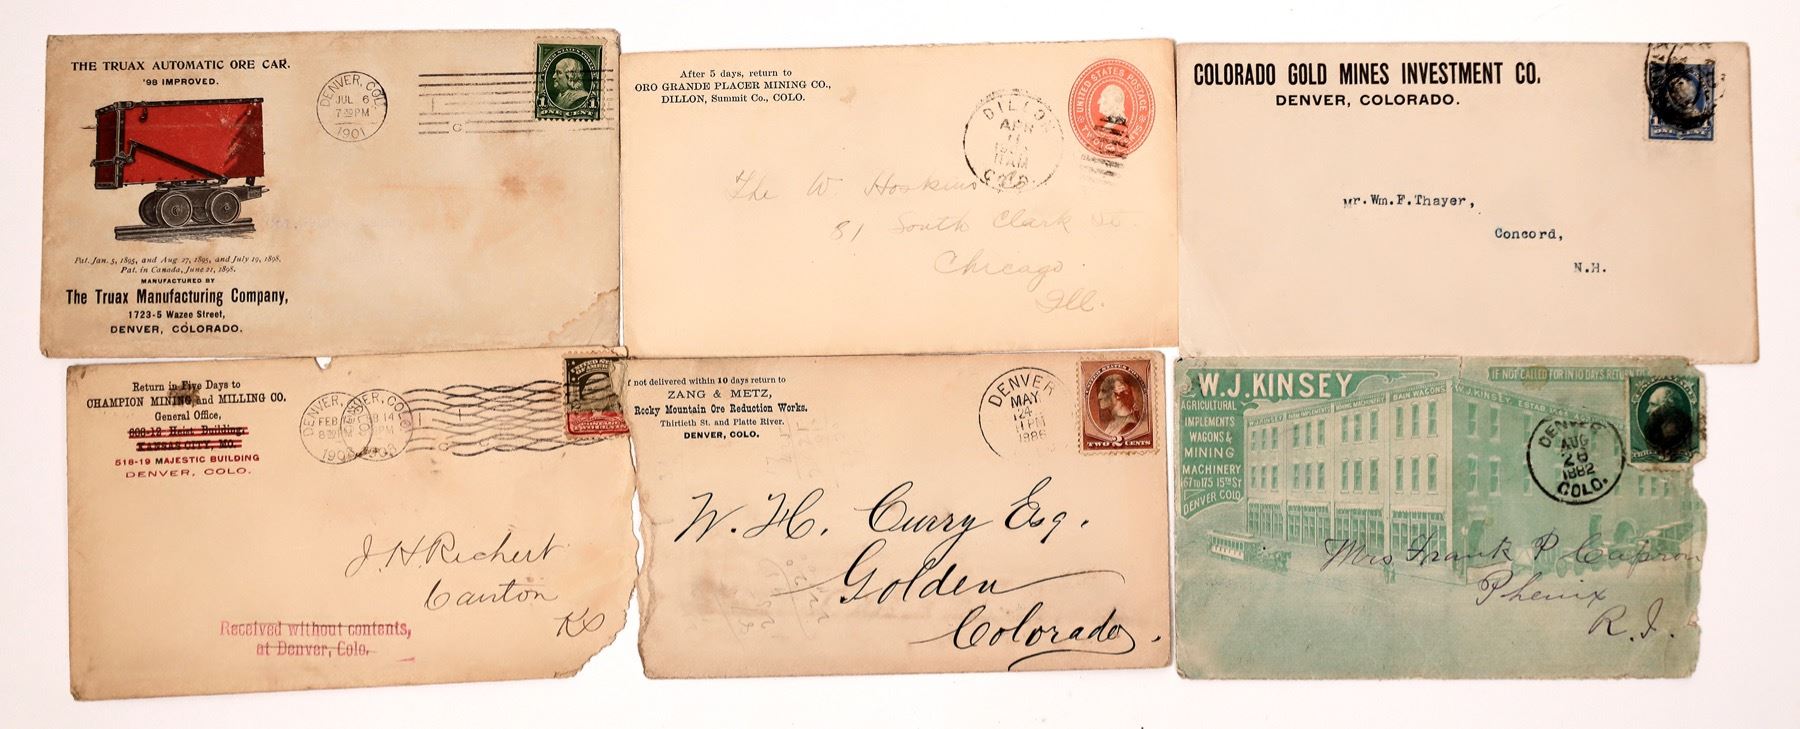 THE TRUAX AUTOMATIC ORE CAR.
'98 IMPROVED.
Pat. Jan. 5, 1895, and Aug 27, 1895, and July 19, 1898.
Pat. in Canada, June 21, 1898.
MANUFACTURED BY
The Truax Manufacturing Company,
1723-5 Wazee Street,
DENVER, COLORADO.
DENVER, COLO.
JUL 6
1901
1
1
ONE CENT
After 5 days, return to
ORO GRANDE PLACER MINING CO.,
DILLON, Summit Co., COLO.
DILLON
APR
11 AM
COLO.
UNITED STATES POSTAGE
The W. Hoskins Co
81 South Clark St.
Chicago.
Ill.
COLORADO GOLD MINES INVESTMENT CO.
DENVER, COLORADO.
ONE CENT
Mr. Wm. F. Thayer,
Concord,
N.H.
Return in Five Days to
CHAMPION MINING and MILLING CO.
General Office,
608-12 Heist Building,
KANSAS CITY, MO.
518-19 MAJESTIC BUILDING
DENVER, COLO.
DENVER,
FEB
14
J. H. Richert
Canton
Ks
Received without contents,
at Denver, Colo.
f not delivered within 10 days return to
ZANG & METZ,
Rocky Mountain Ore Reduction Works.
Thirtieth St. and Platte River.
DENVER, COLO.
DENVER
MAY
24
1 PM
1886
TWO 2 CENTS
W. H. Curry Esq.
Golden
Colorado.
W. J. KINSEY
AGRICULTURAL
IMPLEMENTS
WAGONS &
MINING
MACHINERY
167 TO 175 15TH ST
DENVER COLO
IF NOT CALLED FOR IN 10 DAYS RETURN TO
W.J. KINSEY
FARM IMPLEMENTS
MINING MACHINERY
BAIN WAGONS
W.J. KINSEY.
DENVER
AUG
26
1882
COLO.
Mrs Frank P Capron
Phenix
R.I.